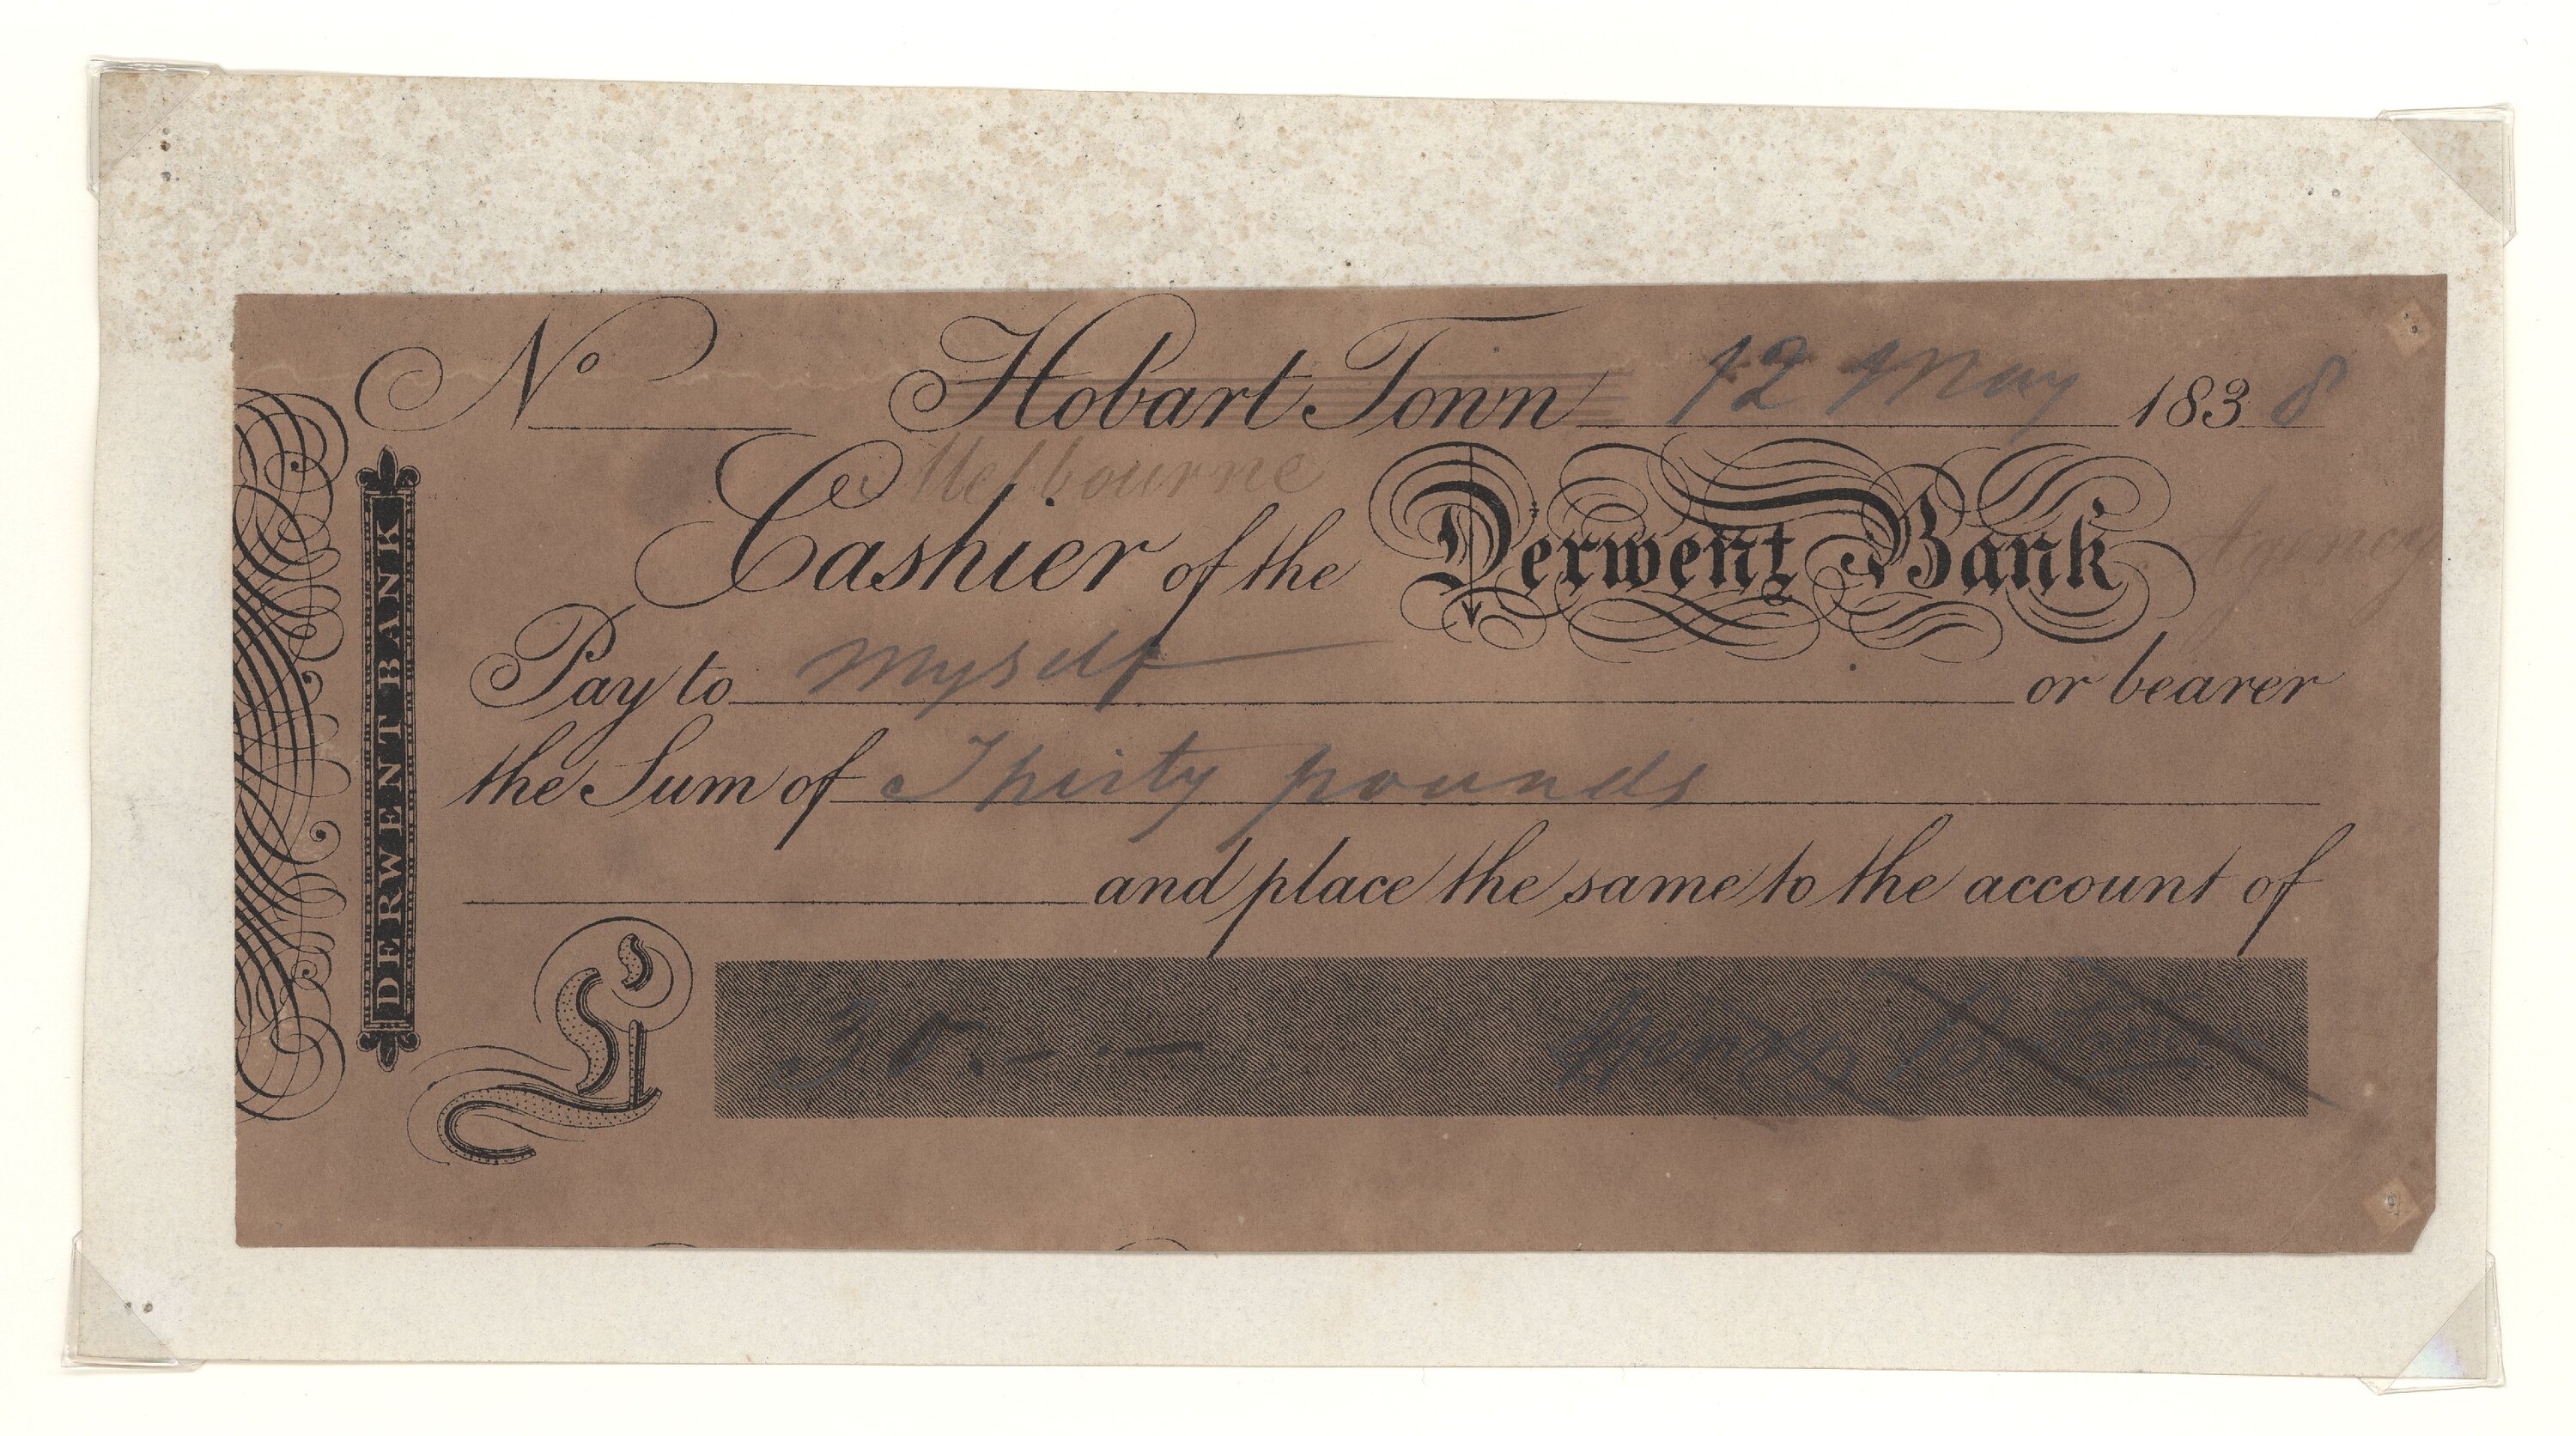 No Hobart Town 12 May 1838
Melbourne
Cashier of the Derwent Bank Agency
Pay to Myself or bearer
the Sum of Thirty pounds
and place the same to the account of
£ 30.--.— Henry B
DERWENT BANK